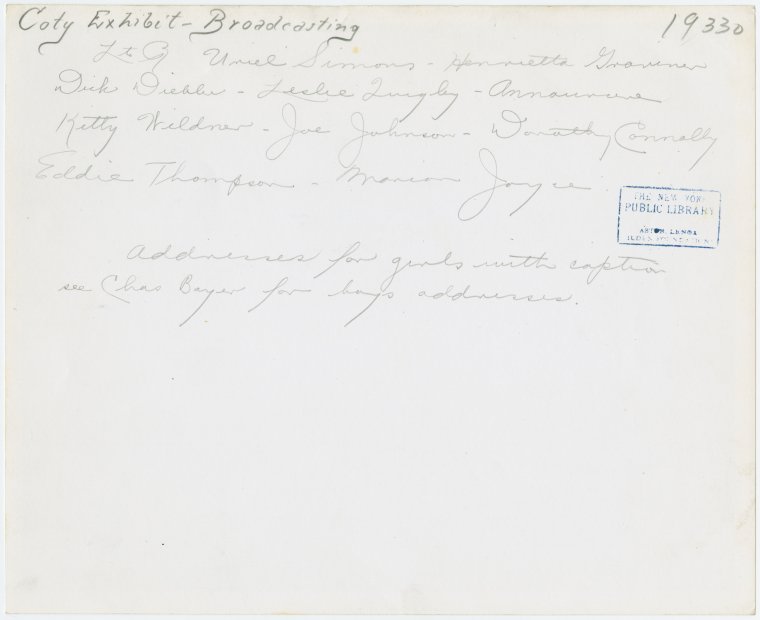 Coty Exhibit - Broadcasting
19330
L to R Uriel Simons - Henrietta
Dick - Leslie Quigley - Announcers
Kitty Wildner - Joe Johnson - Dorothy Connolly
Eddie Thompson - Marian Joyce
THE NEW YORK
PUBLIC LIBRARY
ASTOR, LENOX
TILDEN FOUNDATION
Addresses for girls with caption
see Chas Bayer for boys addresses.